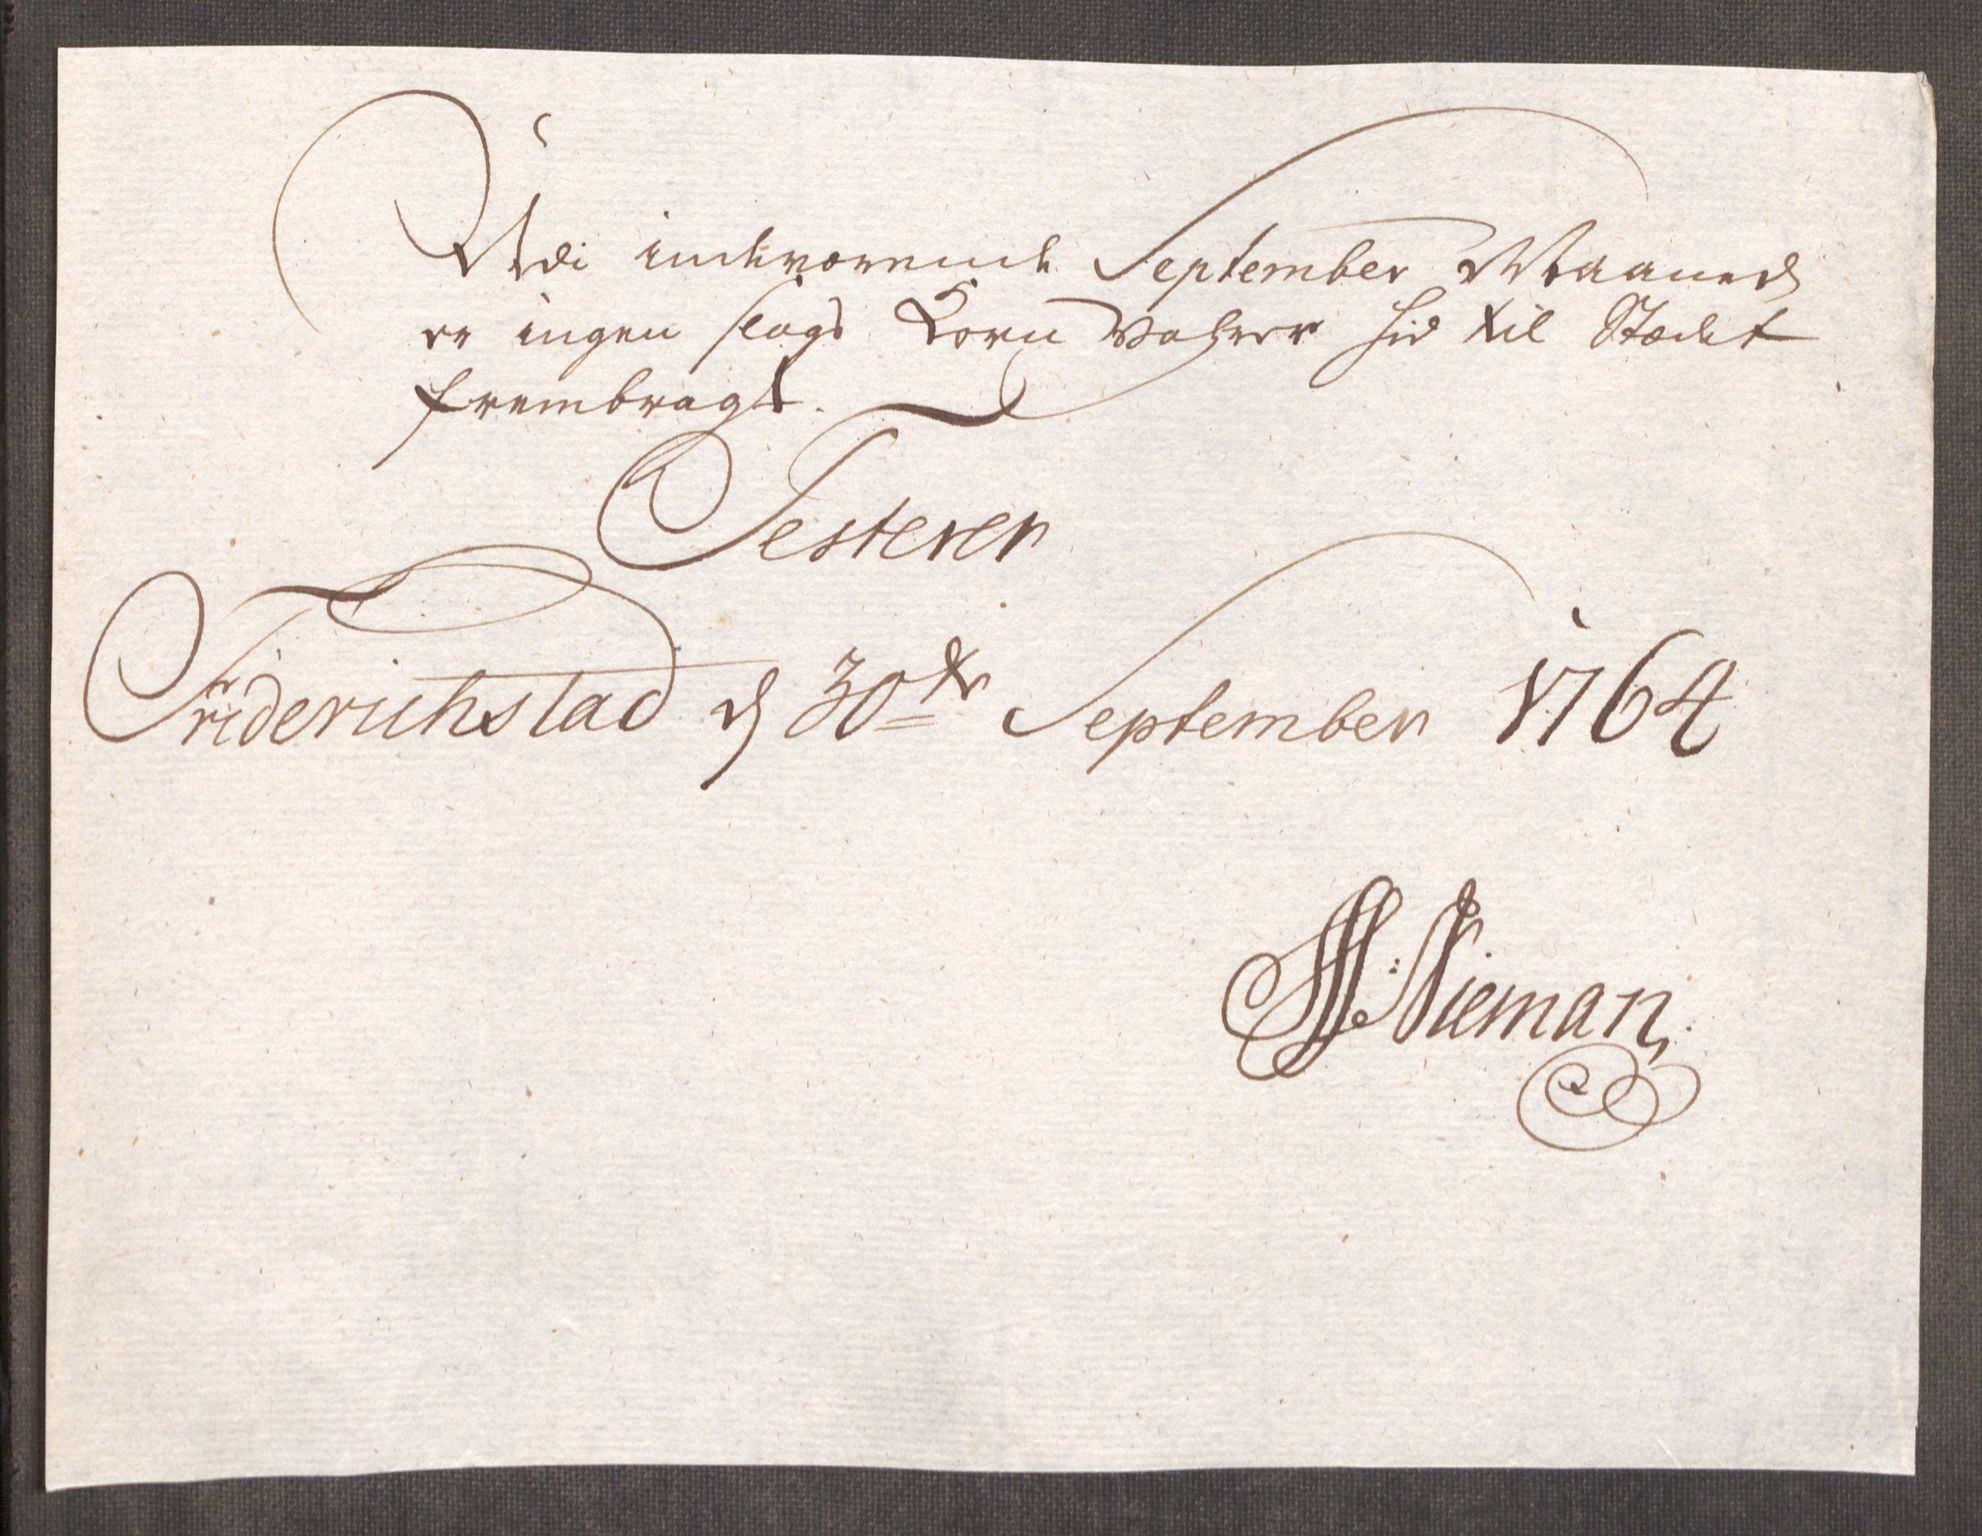 Udi indeværende September Maaned
er ingen slags Korn Vahrer hid til Stædet
frembragt.
Testerer
Friderichstad d 30te September 1764
Nieman